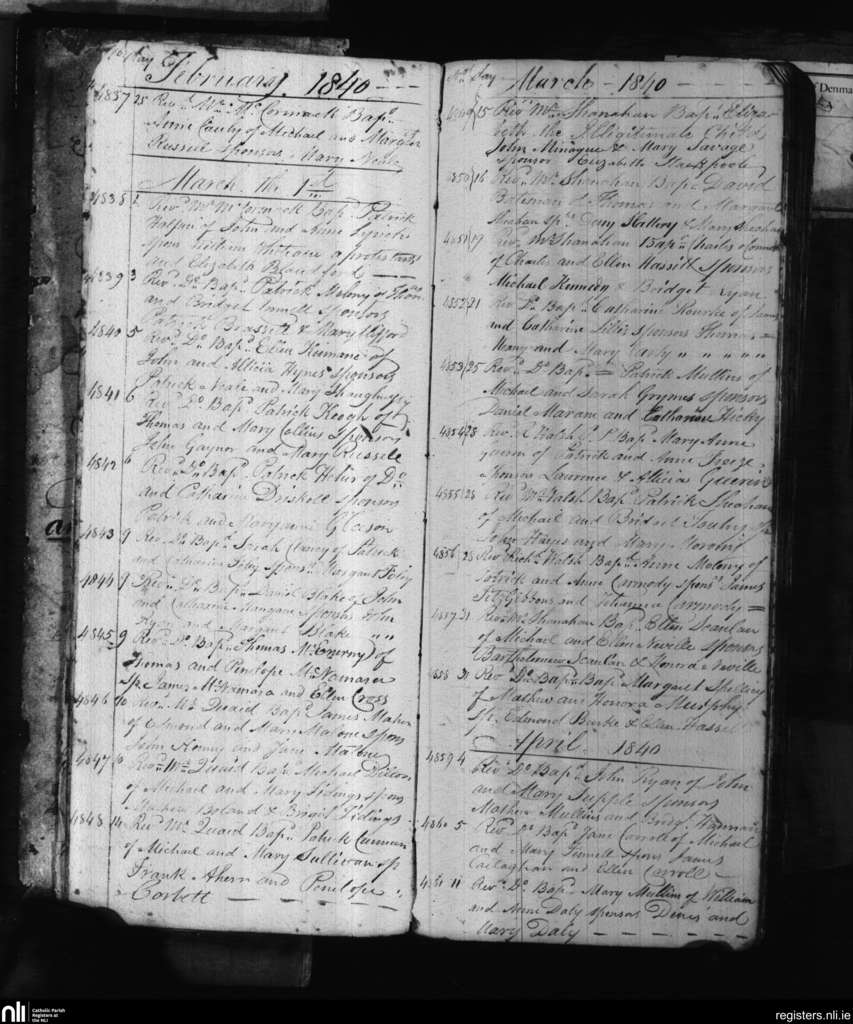 No Day February 1840
4837 25 Revd Mr McCormack Bapd
Anne Cauty of Michael and Margt
Russell Sponsor Mary Neale
March the 1st
4838 1 Revd Mr McCormack Bapd Patrick
of John and Anne
Spon William Whiteacre a protestant
and Elizabeth Blandford
4839 3 Revd Do Bapd Patrick Molony of Thos
and Bridget Sponsors
Patrick Brassell & Mary Clifford
4840 5 Revd Do Bapd Ellen Humane of
John and Allicia Hynes Sponsors
Patrick and Mary Shaughnessy
4841 6 Revd Do Bapd Patrick Keogh of
Thomas and Mary Collins Sponsors
John Gaynor and Mary Russell
4842 6 Revd Do Bapd Patrick of Do
and Catharine Driskoll Sponsors
Patrick and Maryanne Gleeson
4843 9 Revd Do Bapd Sarah Clancy of Patrick
and Catharine Foley Sponsr Margaret Foley
4844 9 Revd Do Bapd Daniel Blake of John
and Catharine Mangane Sponsrs John
Ryan and Margaret Blake " "
4845 9 Revd Do Bapd Thomas McEnerny of
Thomas and Penelope McNamara
Sps James McNamara and Ellen Cross
4846 10 Revd Mr Quaid Bapd James Maher
of Edmond and Mary Malone Spons
John and Jane Malone
4847 10 Revd Mr Quaid Bapd Michael Dillon
of Michael and Mary Tidings Spons
Mathew Boland & Bridget Tidings
4848 14 Revd Mr Quaid Bapd Patrick
of Michael and Mary Sullivan Sp
Frank Ahern and Penelope
Corbett
No Day March 1840
4849 15 Revd Mr Shanahan Bapd Eliza
beth the Illegitimate Child of
John Minogue & Mary Savage
Sponsor Elizabeth Stackpoole
4850 16 Revd Mr Shanahan Bapd David
Bateman of Thomas and Margaret
Sheahan Sps Deny Slattery & Mary Sheahan
4851 19 Revd Mr Shanahan Bapd Charles OConnell
of Charles and Ellen Hassett Sponsors
Michael Kennedy & Bridget Ryan
4852 21 Revd Do Bapd Catharine Rourke of James
and Catharine Lillis Sponsors Thomas
and Mary Early " " " " "
4853 25 Revd Do Bapd Patrick Mullins of
Michael and Sarah Grymes Sponsors
Daniel Marane and Catharine Hickey
4854 28 Revd R Walsh P.P. Bapd Mary Anne
Guerin of Patrick and Anne Frieze
Sponsors Laurence & Allicia Guerin
4855 28 Revd Mr Walsh Bapd Patrick Sheahan
of Michael and Bridget
John Hayes and Mary
4856 28 Revd Richd Walsh Bapd Anne Molony of
Patrick and Anne Carmody Spons James
FitzGibbons and Johanna Carmody
4857 31 Revd Mr Shanahan Bapd Ellen Scanlan
of Michael and Ellen Neville Sponsors
Bartholomew Scanlan & Honora Neville
4858 31 Revd Do Bapd Bapd Margaret Sheehy
of Mathew and Honora Murphy
Sps Edmond Burke & Ellen Hassett
April 1840
4859 4 Revd Do Bapd John Ryan of John
and Mary Supple Sponsors
Mathew Mullins and Bridgt Hannan
4860 5 Revd Do Bapd Jane Carroll of Michael
and Mary Spons James
Callaghan and Ellen Carroll
4861 11 Revd Do Bapd Mary Mullins of William
and Anne Daly Sponsors Denis and
Mary Daly
Denma
A
nli Catholic Parish
Registers at
the NLI
registers.nli.ie